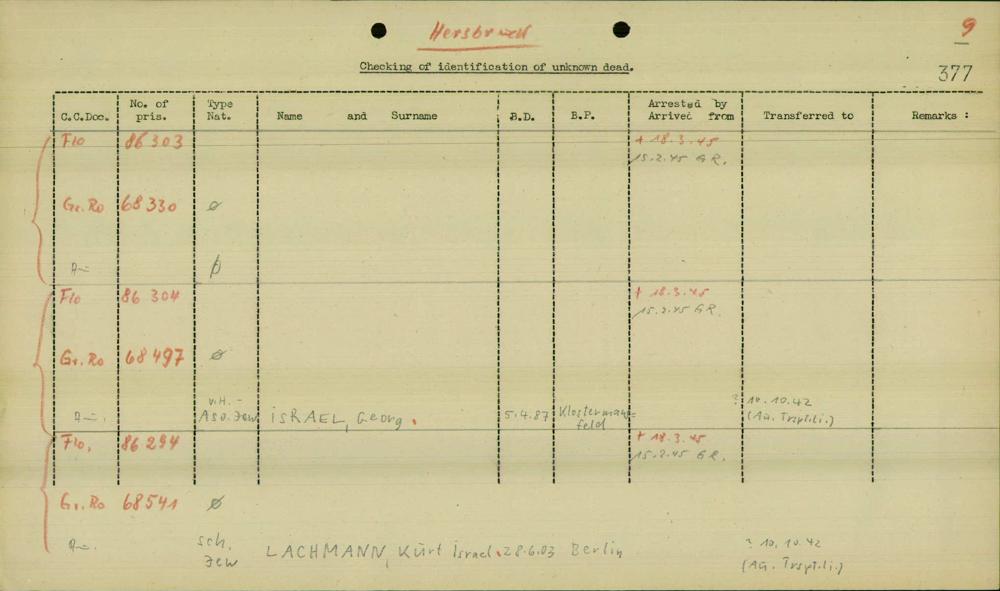 Hersbruck
9
Checking of identification of unknown dead.
377
C.C.Doc. No. of pris. Type Nat. Name and Surname B.D. B.P. Arrested by Arrived from Transferred to Remarks :
Flo 86 303 + 18.3.45
15.2.45 G R.
Gr. Ro 68 330 ø
ø
Flo 86 304 + 18.3.45
15.2.45 G R.
Gr. Ro 68 497 ø
v.H. -
Aso. Jew ISRAEL, Georg. 5.4.87 Klostermans- ? 10.10.42
feld (Au. Trsplti.)
Flo, 86 294 + 18.3.45
15.2.45 G R.
Gr. Ro 68541 ø
sch. LACHMANN, Kurt Israel. 28.6.03 Berlin ? 10.10.42
Jew (Au. Trsplt.li.)